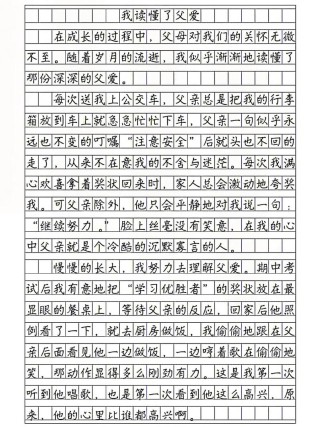 我读懂了父爱
在成长的过程中，父母对我们的关怀无微
不至。随着岁月的流逝，我似乎渐渐地读懂了
那份深深的父爱。
每次送我上公交车，父亲总是把我的行李
箱放到车上就忽忽忙忙下车，父亲一句似乎永
远也不变的叮嘱“注意安全”后就头也不回的
走了，从来不在意我的不舍与迷茫。每次我满
心欢喜拿着奖状回来时，家人总会激动地夸奖
我。可父亲除外，他只会平静地对我说一句：
“继续努力。”脸上丝毫没有笑意，在我的心
中父亲就是个冷酷的沉默寡言的人。
慢慢的长大，我努力去理解父爱。期中考
试后我有意地把“学习优胜者”的奖状放在最
显眼的餐桌上，等待父亲的反应，回家后他照
例看了一下，就去厨房做饭，我偷偷地跟在父
亲后面看见他一边做饭，一边哼着歌在偷偷地
笑，那动作显得多么刚劲有力。这是我第一次
听到他唱歌，也是第一次看到他这么高兴，原
来，他的心里比谁都高兴啊。